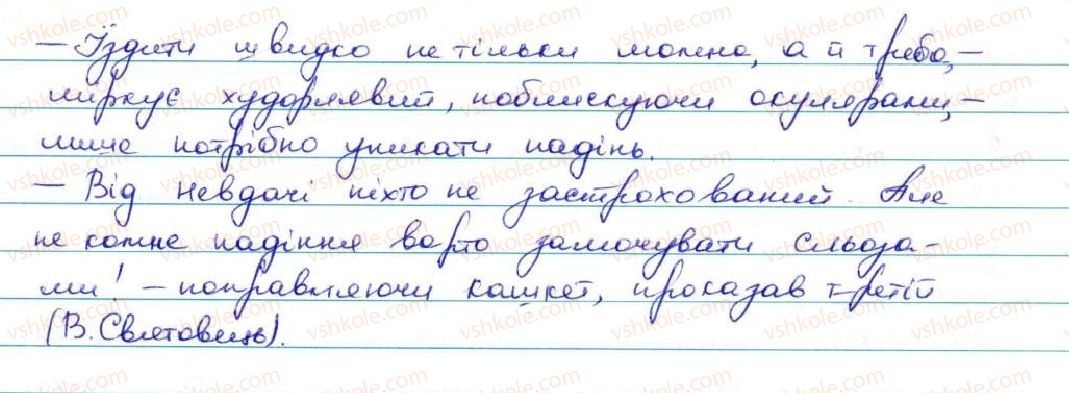 – Їздити швидко не тільки можна, а й треба, –
міркує худорлявий, поблискуючи окулярами, –
лише потрібно уникати падінь.
– Від невдачі ніхто не застрахований. Але
не кожне падіння варто замочувати сльоза-
ми! – поправляючи кашкет, проказав третій
(В. Святовець).